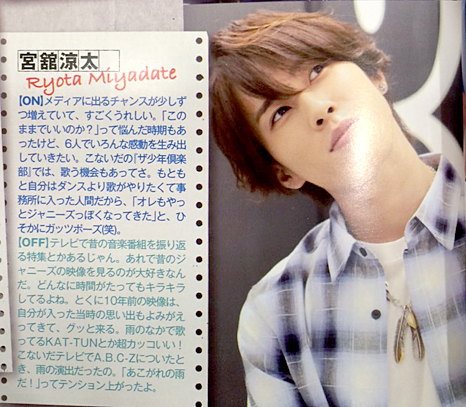 宮舘涼太
Ryota Miyadate
[ON]メディアに出るチャンスが少しず
つ増えていて、すごくうれしい。「この
ままでいいのか?」って悩んだ時期もあ
ったけど、6人でいろんな感動を生み出
していきたい。こないだの「ザ少年倶楽
部」では、歌う機会もあってさ。もとも
と自分はダンスより歌がやりたくて事
務所に入った人間だから、「オレもやっ
とジャニーズっぽくなってきた」と、ひ
そかにガッツポーズ(笑)。
[OFF]テレビで昔の音楽番組を振り返
る特集とかあるじゃん。あれで昔のジ
ャニーズの映像を見るのが大好きなん
だ。どんなに時間がたってもキラキラ
してるよね。とくに10年前の映像は、
自分が入った当時の思い出もよみがえ
ってきて、グッと来る。雨のなかで歌
ってるKAT-TUNとか超カッコいい!
こないだテレビでA.B.C-Zについたと
き、雨の演出だったの。「あこがれの雨
だ!」ってテンション上がったよ。